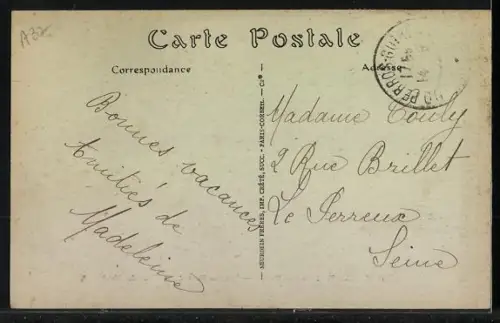 A32
Carte Postale
Correspondance
Adresse
Bonnes vacances
Amitiés de
Madeleine
MAURORIN FRÈRES, IMP. CRÉTÉ, SUCC. - PARIS-CORBEIL - Cie
Madame Couly
2 Rue Brillet
Le Perreux
Seine
PERROS-GUIREC
17
14